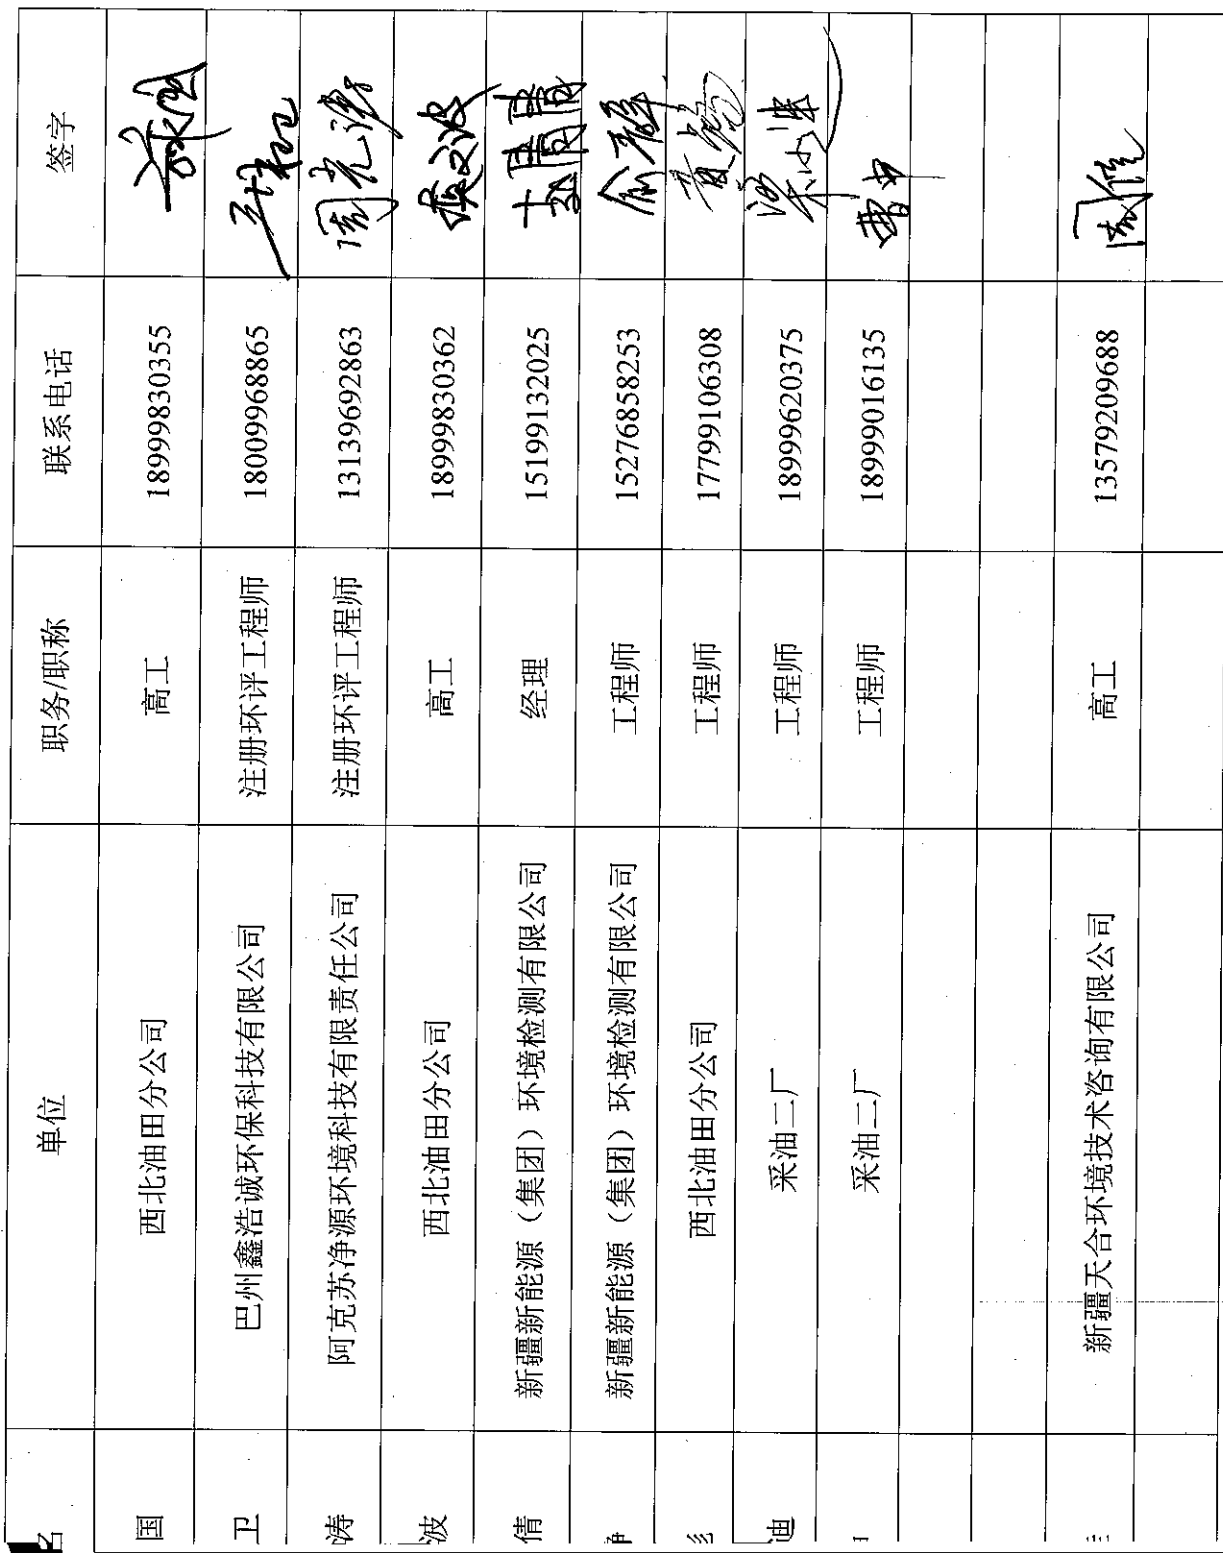 名 单位 职务/职称 联系电话 签字
国 西北油田分公司 高工 18999830355
卫 巴州鑫浩诚环保科技有限公司 注册环评工程师 18009968865
涛 阿克苏净源环境科技有限责任公司 注册环评工程师 13139692863
波 西北油田分公司 高工 18999830362
倩 新疆新能源（集团）环境检测有限公司 经理 15199132025
新疆新能源（集团）环境检测有限公司 工程师 15276858253
西北油田分公司 工程师 17799106308
迪 采油二厂 工程师 18999620375
采油二厂 工程师 18999016135
新疆天合环境技术咨询有限公司 高工 13579209688